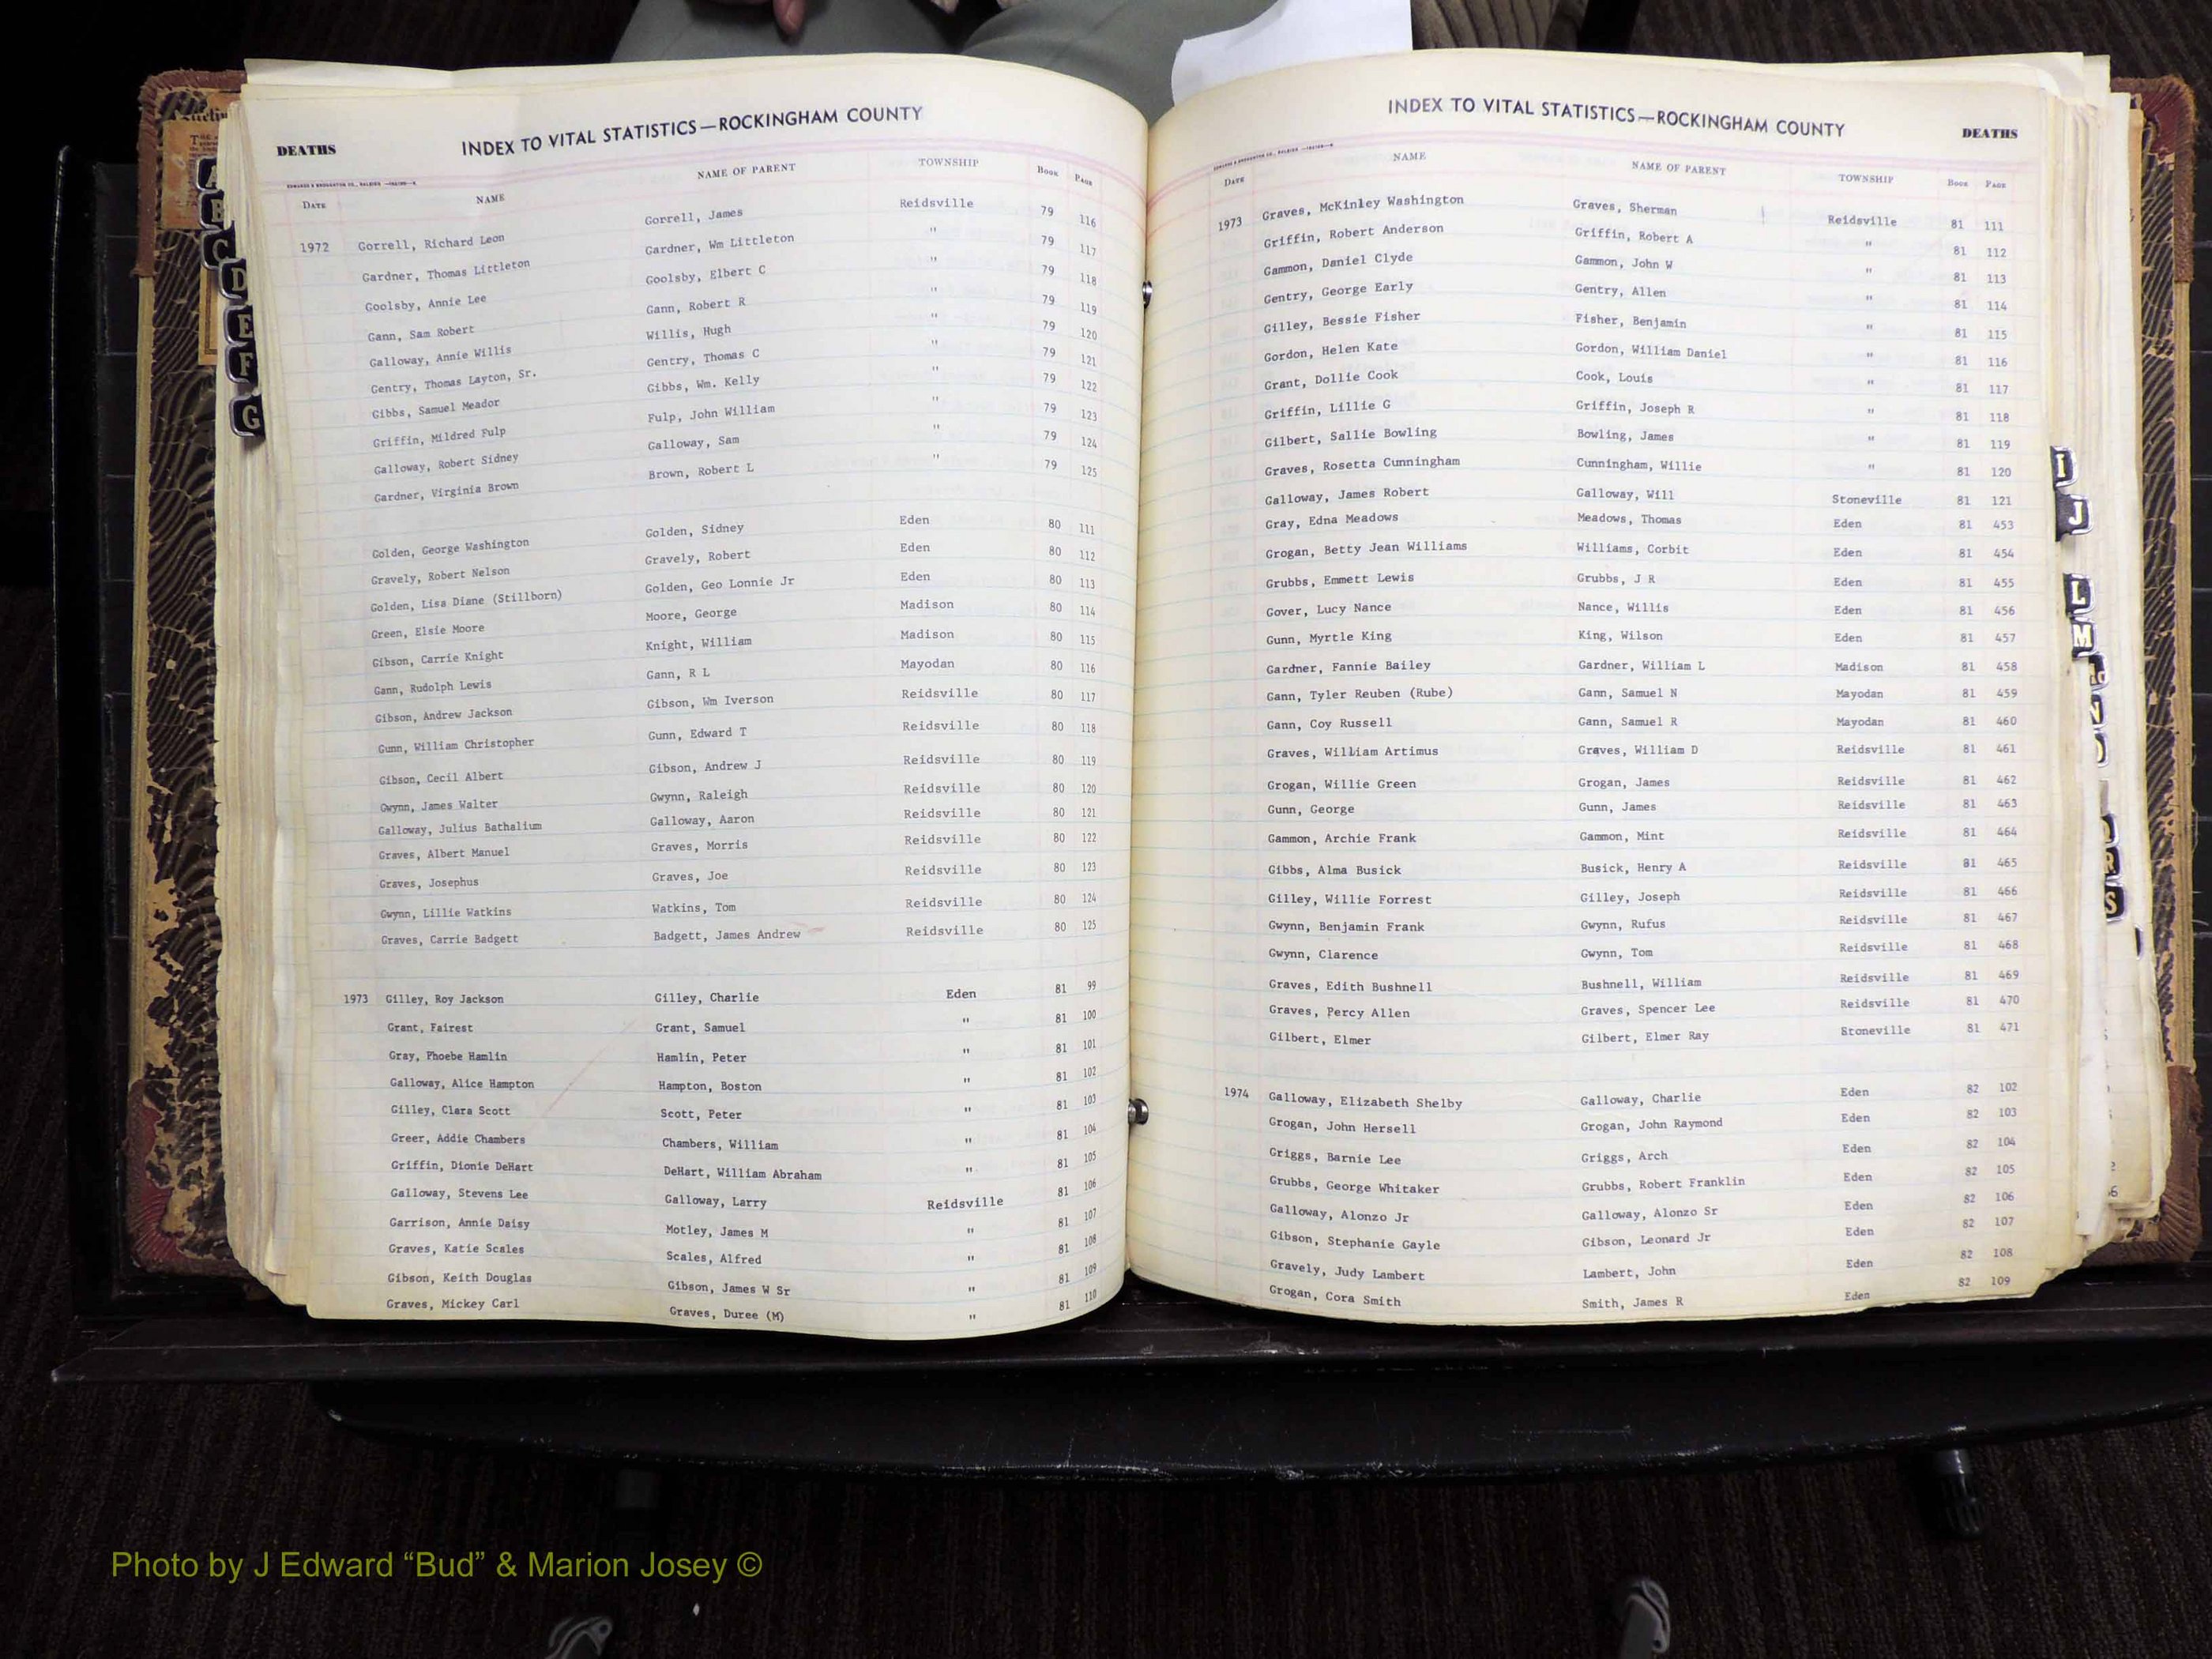 DEATHS
INDEX TO VITAL STATISTICS—ROCKINGHAM COUNTY
DATE NAME NAME OF PARENT TOWNSHIP BOOK PAGE
1972 Gorrell, Richard Leon Gorrell, James Reidsville 79 116
Gardner, Thomas Littleton Gardner, Wm Littleton " 79 117
Goolsby, Annie Lee Goolsby, Elbert C " 79 118
Gann, Sam Robert Gann, Robert R " 79 119
Galloway, Annie Willis Willis, Hugh " 79 120
Gentry, Thomas Layton, Sr. Gentry, Thomas C " 79 121
Gibbs, Samuel Meador Gibbs, Wm. Kelly " 79 122
Griffin, Mildred Fulp Fulp, John William " 79 123
Galloway, Robert Sidney Galloway, Sam " 79 124
Gardner, Virginia Brown Brown, Robert L " 79 125
Golden, George Washington Golden, Sidney Eden 80 111
Gravely, Robert Nelson Gravely, Robert Eden 80 112
Golden, Lisa Diane (Stillborn) Golden, Geo Lonnie Jr Eden 80 113
Green, Elsie Moore Moore, George Madison 80 114
Gibson, Carrie Knight Knight, William Madison 80 115
Gann, Rudolph Lewis Gann, R L Mayodan 80 116
Gibson, Andrew Jackson Gibson, Wm Iverson Reidsville 80 117
Gunn, William Christopher Gunn, Edward T Reidsville 80 118
Gibson, Cecil Albert Gibson, Andrew J Reidsville 80 119
Gwynn, James Walter Gwynn, Raleigh Reidsville 80 120
Galloway, Julius Bathalium Galloway, Aaron Reidsville 80 121
Graves, Albert Manuel Graves, Morris Reidsville 80 122
Graves, Josephus Graves, Joe Reidsville 80 123
Gwynn, Lillie Watkins Watkins, Tom Reidsville 80 124
Graves, Carrie Badgett Badgett, James Andrew Reidsville 80 125
1973 Gilley, Roy Jackson Gilley, Charlie Eden 81 99
Grant, Fairest Grant, Samuel " 81 100
Gray, Phoebe Hamlin Hamlin, Peter " 81 101
Galloway, Alice Hampton Hampton, Boston " 81 102
Gilley, Clara Scott Scott, Peter " 81 103
Greer, Addie Chambers Chambers, William " 81 104
Griffin, Dionie DeHart DeHart, William Abraham " 81 105
Galloway, Stevens Lee Galloway, Larry Reidsville 81 106
Garrison, Annie Daisy Motley, James M " 81 107
Graves, Katie Scales Scales, Alfred " 81 108
Gibson, Keith Douglas Gibson, James W Sr " 81 109
Graves, Mickey Carl Graves, Duree (M) " 81 110
INDEX TO VITAL STATISTICS—ROCKINGHAM COUNTY
DEATHS
DATE NAME NAME OF PARENT TOWNSHIP BOOK PAGE
1973 Graves, McKinley Washington Graves, Sherman Reidsville 81 111
Griffin, Robert Anderson Griffin, Robert A " 81 112
Gammon, Daniel Clyde Gammon, John W " 81 113
Gentry, George Early Gentry, Allen " 81 114
Gilley, Bessie Fisher Fisher, Benjamin " 81 115
Gordon, Helen Kate Gordon, William Daniel " 81 116
Grant, Dollie Cook Cook, Louis " 81 117
Griffin, Lillie G Griffin, Joseph R " 81 118
Gilbert, Sallie Bowling Bowling, James " 81 119
Graves, Rosetta Cunningham Cunningham, Willie " 81 120
Galloway, James Robert Galloway, Will Stoneville 81 121
Gray, Edna Meadows Meadows, Thomas Eden 81 453
Grogan, Betty Jean Williams Williams, Corbit Eden 81 454
Grubbs, Emmett Lewis Grubbs, J R Eden 81 455
Gover, Lucy Nance Nance, Willis Eden 81 456
Gunn, Myrtle King King, Wilson Eden 81 457
Gardner, Fannie Bailey Gardner, William L Madison 81 458
Gann, Tyler Reuben (Rube) Gann, Samuel N Mayodan 81 459
Gann, Coy Russell Gann, Samuel R Mayodan 81 460
Graves, William Artimus Graves, William D Reidsville 81 461
Grogan, Willie Green Grogan, James Reidsville 81 462
Gunn, George Gunn, James Reidsville 81 463
Gammon, Archie Frank Gammon, Mint Reidsville 81 464
Gibbs, Alma Busick Busick, Henry A Reidsville 81 465
Gilley, Willie Forrest Gilley, Joseph Reidsville 81 466
Gwynn, Benjamin Frank Gwynn, Rufus Reidsville 81 467
Gwynn, Clarence Gwynn, Tom Reidsville 81 468
Graves, Edith Bushnell Bushnell, William Reidsville 81 469
Graves, Percy Allen Graves, Spencer Lee Reidsville 81 470
Gilbert, Elmer Gilbert, Elmer Ray Stoneville 81 471
1974 Galloway, Elizabeth Shelby Galloway, Charlie Eden 82 102
Grogan, John Hersell Grogan, John Raymond Eden 82 103
Griggs, Barnie Lee Griggs, Arch Eden 82 104
Grubbs, George Whitaker Grubbs, Robert Franklin Eden 82 105
Galloway, Alonzo Jr Galloway, Alonzo Sr Eden 82 106
Gibson, Stephanie Gayle Gibson, Leonard Jr Eden 82 107
Gravely, Judy Lambert Lambert, John Eden 82 108
Grogan, Cora Smith Smith, James R Eden 82 109
A
B
C
D
E
F
G
I
J
L
M
N
R
S
Photo by J Edward “Bud” & Marion Josey ©